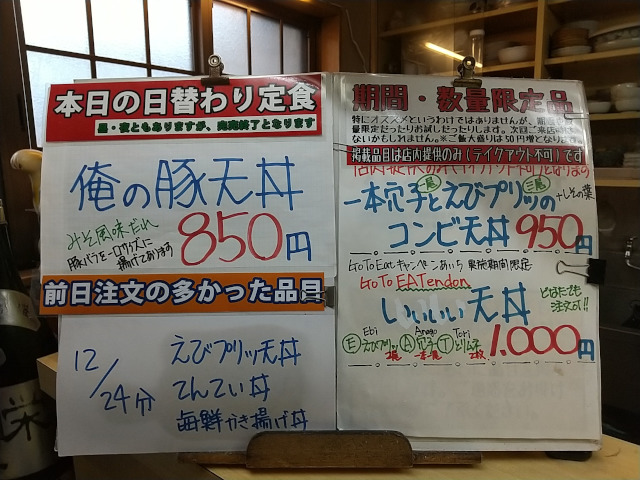 本日の日替わり定食
昼・夜ともありますが、完売終了となります
俺の豚天丼
みそ風味だれ
豚バラを一口サイズに
揚げてあります
850円
前日注文の多かった品目
12/24分
えびプリッ天丼
てんてい丼
海鮮かき揚げ丼
期間・数量限定品
特にオススメというわけではありませんが、期間
量限定だったりお試しだったりします。次回ご来店
ないかもしれません。※ご飯大盛りは50円増となります
掲載品目は店内提供のみ(テイクアウト不可)です
一本穴子とえびプリッの
二尾
+しその葉
コンビ天丼 950円
GoTo Eatキャンペーンあいち 実施期間限定
GoTo EATendon
いいいい天丼
どなたでも
注文可!!
Ebi Anago Tori
E えびプリッ 二尾 A 穴子 一本 T とりムネ 2枚
1.000円
栄